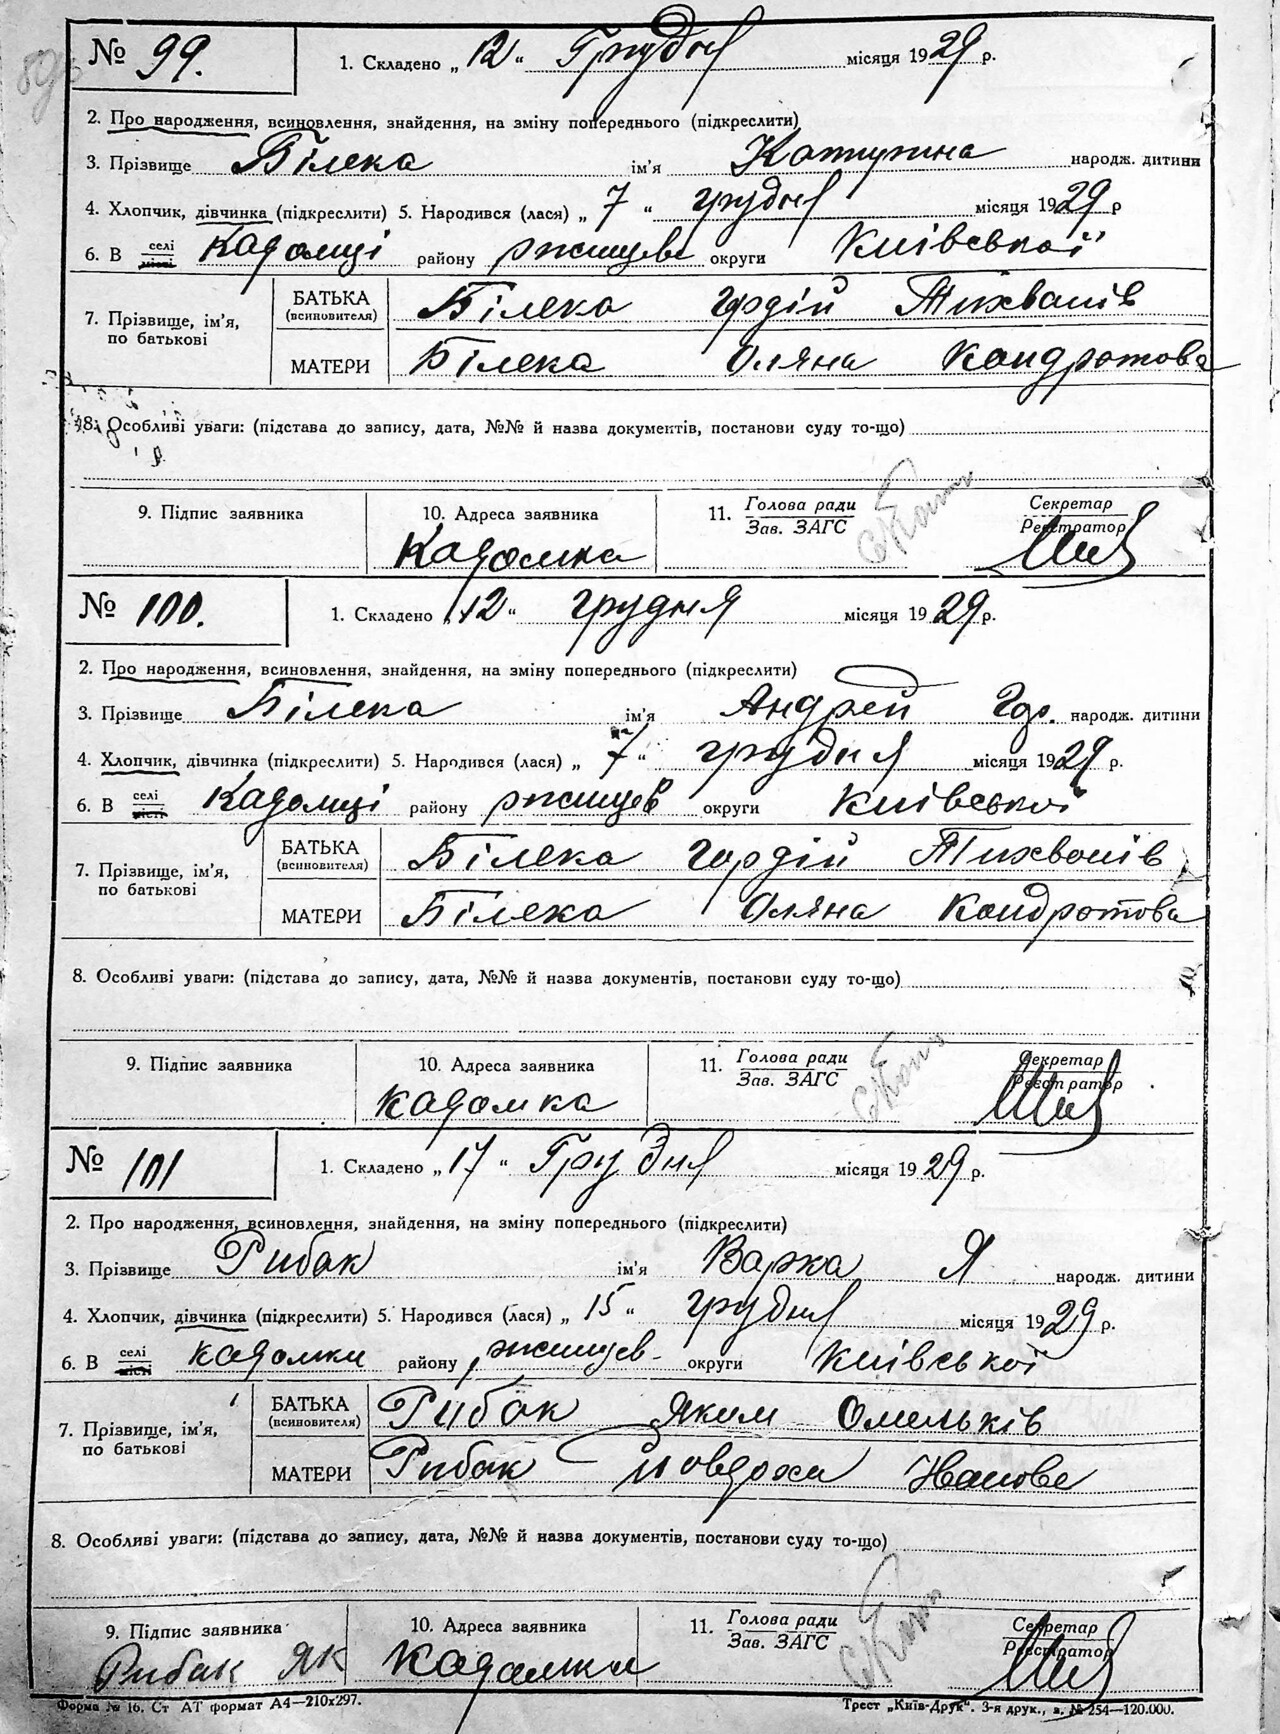 № 99. 1. Складено „ 12 “ Грудня місяця 1929 р.
2. Про народження, всиновлення, знайдення, на зміну попереднього (підкреслити)
3. Прізвище Білека ім'я Катерина народж. дитини
4. Хлопчик, дівчинка (підкреслити) 5. Народився (лася) „ 7 “ грудня місяця 1929 р
6. В селі місті Кадомці району ржищев округи Київської
7. Прізвище, ім'я, по батькові БАТЬКА (всиновителя) Білека Гордій Тихванів
МАТЕРИ Білека Оляна Кондратова
8. Особливі уваги: (підстава до запису, дата, №№ й назва документів, постанови суду то-що)
9. Підпис заявника 10. Адреса заявника 11. Голова ради Зав. ЗАГС Секретар Реєстратор
Кадомка
№ 100. 1. Складено „ 12 “ грудня місяця 1929 р.
2. Про народження, всиновлення, знайдення, на зміну попереднього (підкреслити)
3. Прізвище Білека ім'я Андрей Гор. народж. дитини
4. Хлопчик, дівчинка (підкреслити) 5. Народився (лася) „ 7 “ грудня місяця 1929 р.
6. В селі місті Кадомці району ржищев округи Київської
7. Прізвище, ім'я, по батькові БАТЬКА (всиновителя) Білека Гордій Тихванів
МАТЕРИ Білека Оляна Кондратова
8. Особливі уваги: (підстава до запису, дата, №№ й назва документів, постанови суду то-що)
9. Підпис заявника 10. Адреса заявника 11. Голова ради Зав. ЗАГС Секретар Реєстратор
Кадомка
№ 101 1. Складено „ 17 “ Грудня місяця 1929 р.
2. Про народження, всиновлення, знайдення, на зміну попереднього (підкреслити)
3. Прізвище Рибак ім'я Варка Я народж. дитини
4. Хлопчик, дівчинка (підкреслити) 5. Народився (лася) „ 15 “ грудня місяця 1929 р.
6. В селі місті Кадомки району ржищев округи Київської
7. Прізвище, ім'я, по батькові БАТЬКА (всиновителя) Рибак Яким Омельків
МАТЕРИ Рибак Йовдоха Иванова
8. Особливі уваги: (підстава до запису, дата, №№ й назва документів, постанови суду то-що)
9. Підпис заявника 10. Адреса заявника 11. Голова ради Зав. ЗАГС Секретар Реєстратор
Рибак ЯК Кадомки
Форма № 16. Ст АТ формат А4—210х297. Трест „Київ-Друк“. 3-я друк., з. № 254—120.000.